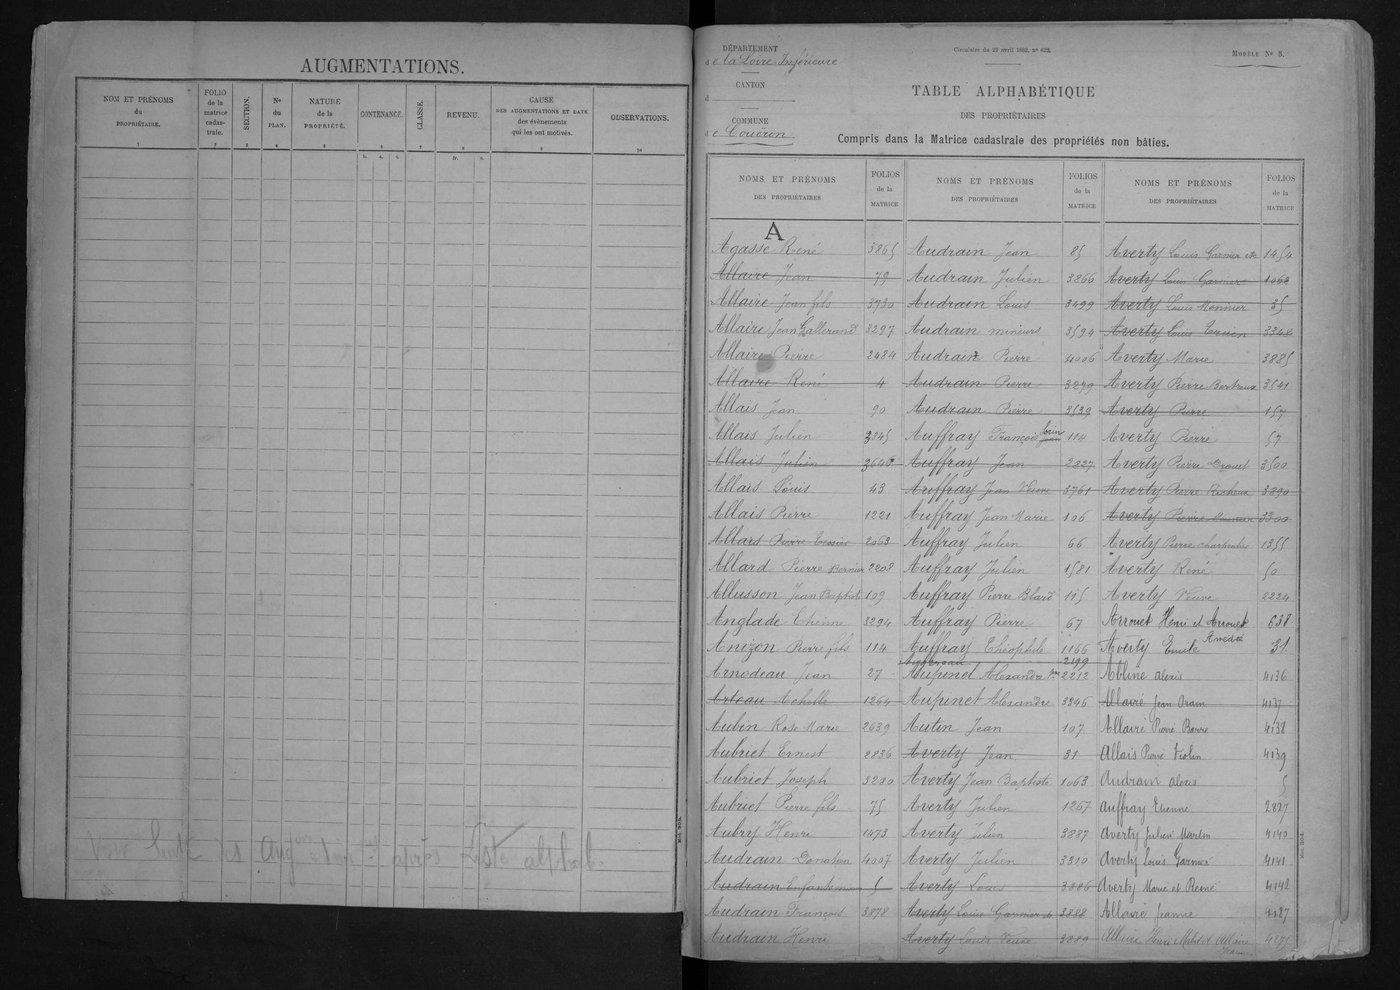 AUGMENTATIONS.
NOM ET PRÉNOMS
du
PROPRIÉTAIRE.
FOLIO
de la
matrice
cadas-
trale.
SECTION.
Nos
du
PLAN.
NATURE
de la
PROPRIÉTÉ.
CONTENANCE.
CLASSE.
REVENU.
CAUSE
DES AUGMENTATIONS ET DATE
des évènements
qui les ont motivés.
OBSERVATIONS.
1 2 3 4 5 6 7 8 9 10
h. a. c. fr. c.
après Liste alphab.
DÉPARTEMENT
de la Loire Inférieure
CANTON
d
COMMUNE
de Couëron
Circulaire du 27 avril 1882, no 622.
MODÈLE No 5.
TABLE ALPHABÉTIQUE
DES PROPRIÉTAIRES
Compris dans la Matrice cadastrale des propriétés non bâties.
NOMS ET PRÉNOMS
DES PROPRIÉTAIRES
FOLIOS
de la
MATRICE
A
Agasse René 3865
Allaire Jean 79
Allaire Jean fils 3730
Allaire Jean Gallerand 3297
Allaire Pierre 2484
Allaire René 4
Allais Jean 90
Allais Julien 3345
Allais Julien 3640
Allais Louis 43
Allais Pierre 1221
Allard Pierre Tessier 2063
Allard Pierre Bernier 2208
Allusson Jean Baptiste 109
Anglade Etienne 3294
Anizon Pierre fils 114
Arnodeau Jean 27
Arteau Achille 1264
Aubin Rose Marie 2639
Aubriet Ernest 2836
Aubriet Joseph 3230
Aubriet Pierre fils 75
Aubry Henri 1473
Audrain Donatien 4007
Audrain Enfantin 5
Audrain François 3878
Audrain Henri
NOMS ET PRÉNOMS
DES PROPRIÉTAIRES
FOLIOS
de la
MATRICE
Audrain Jean 85
Audrain Julien 3866
Audrain Louis 3499
Audrain mineurs 3594
Audrain Pierre 4006
Audrain Pierre 3279
Audrain Pierre 2539
Auffray François 114
Auffray Jean 2827
Auffray Jean Veuve 3761
Auffray Jean Marie 106
Auffray Julien 66
Auffray Julien 1581
Auffray Pierre Blard 115
Auffray Pierre 67
Auffray Théophile 1166
2199
Aupinel Alexandre 2212
Aupinet Alexandre 3346
Autin Jean 107
Averty Jean 31
Averty Jean Baptiste 1063
Averty Julien 1267
Averty Julien 3887
Averty Julien 3310
Averty Louis 3886
Averty Louis Garnier 3888
Averty Louis Veuve 3889
NOMS ET PRÉNOMS
DES PROPRIÉTAIRES
FOLIOS
de la
MATRICE
Averty Louis Garnier 1454
Averty Louis Garnier 1063
Averty Louis Monnier 35
Averty Louis 3348
Averty Marie 3885
Averty Pierre Bertreux 3541
Averty Pierre 157
Averty Pierre 57
Averty Pierre Drouet 3500
Averty Pierre 3890
Averty Pierre 3300
Averty Pierre charpentier 1355
Averty René 50
Averty Veuve 2224
Arrouet Henri et Arrouet 638
Amédée
Averty Emile 31
Abline alexis 4136
Allaire Jean Orain 4137
Allaire Pierre Barre 4138
Allais Pierre Violin 4139
Audrain alexis 5
Auffray Etienne 2827
Averty Julien Merlin 4140
Averty Louis Garnier 4141
Averty Marie et René 4142
Allaire Jeanne 4027
Allaire Henri et Allaire